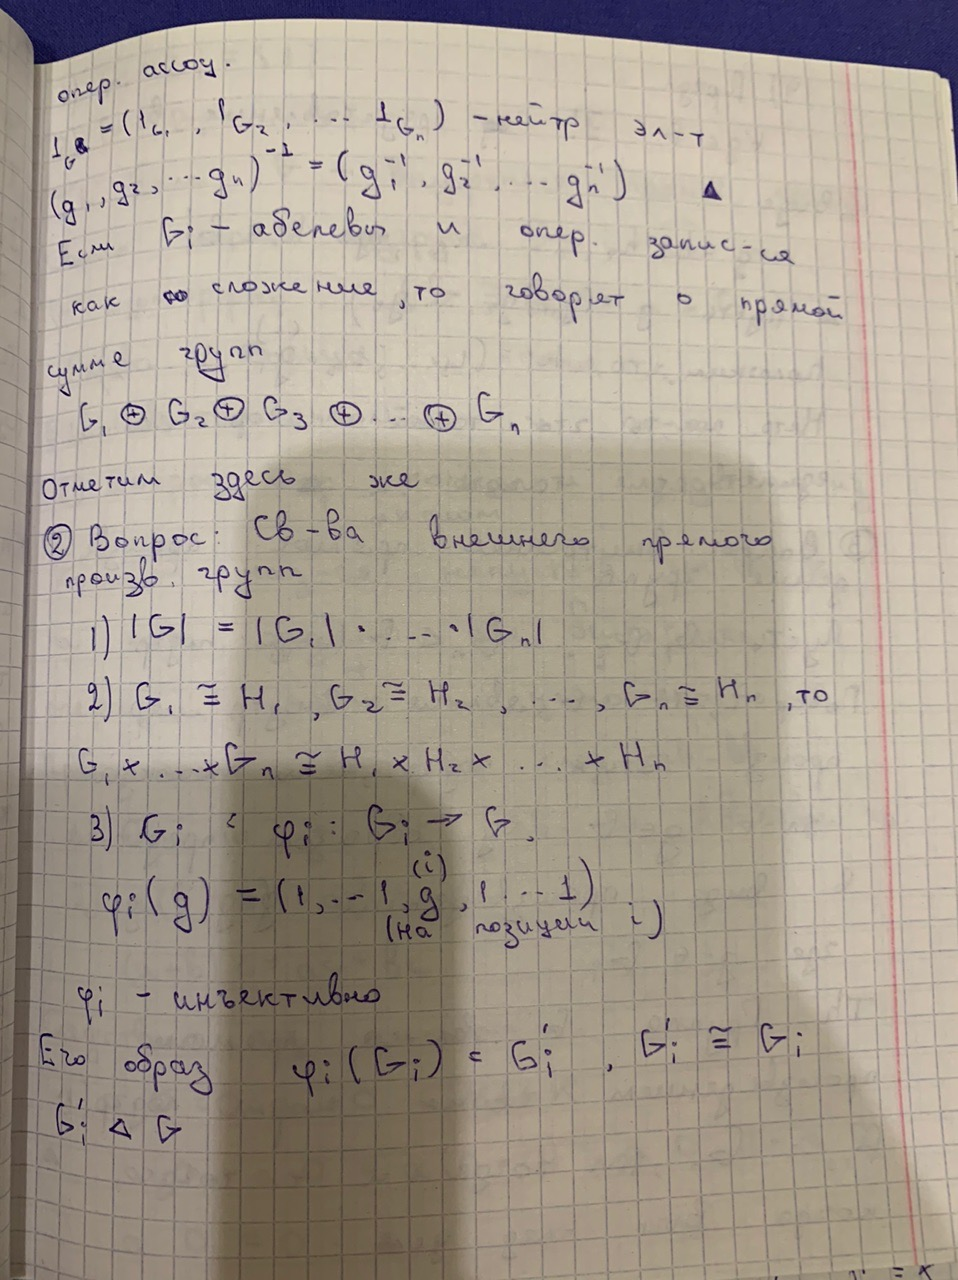 опер. ассоц.
1_G = (1_{G_1}, 1_{G_2}, ... 1_{G_n}) - нейтр эл-т
(g_1, g_2, ... g_n)^{-1} = (g_1^{-1}, g_2^{-1}, ... g_n^{-1}) ▲
Если G_i - абелевы и опер. запис-ся
как сложение, то говорят о прямой
сумме групп
G_1 ⊕ G_2 ⊕ G_3 ⊕ ... ⊕ G_n
Отметим здесь же
② Вопрос: Св-ва внешнего прямого
произв. групп
1) |G| = |G_1| · ... · |G_n|
2) G_1 ≅ H_1, G_2 ≅ H_2, ..., G_n ≅ H_n, то
G_1 × ... × G_n ≅ H_1 × H_2 × ... × H_n
3) G_i : φ_i : G_i → G,
φ_i(g) = (1, ... 1, g^{(i)}, 1 ... 1)
(на позиции i)
φ_i - инъективно
Его образ φ_i(G_i) = G_i', G_i' ≅ G_i
G_i' ⊲ G